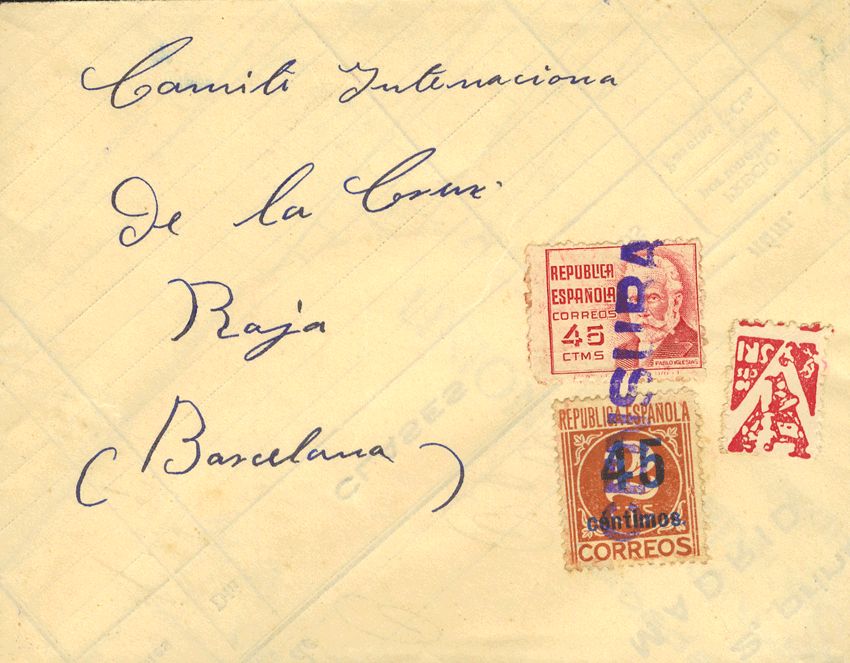 Comité Internaciona
De la Cruz
Roja
(Barcelona)
REPUBLICA
ESPAÑOLA
CORREOS
45
CTMS
PABLO IGLESIAS
CENSURA
REPUBLICA ESPAÑOLA
45
2
CTS
céntimos.
CORREOS
SRI
CLASES
MADRID
PRECIO
núm.